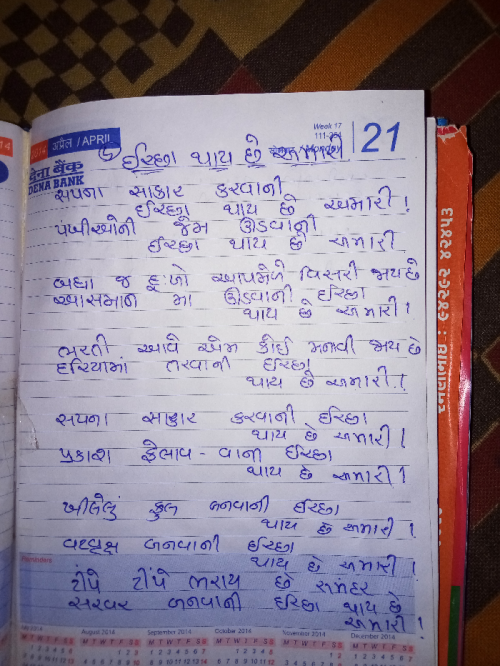 2014 अप्रैल / APRIL
Week 17
111-
Monday
21
देना बैंक
DENA BANK
ઈચ્છા થાય છે અમારી
સપના સાકાર કરવાની
ઈચ્છા થાય છે અમારી !
પંખીઓની જેમ ઊડવાની
ઈચ્છા થાય છે અમારી
બધા જ દુ:ખો આપમેળે વિસરી જાય છે
આસમાન મા ઊડવાની ઈચ્છા
થાય છે અમારી !
ભરતી આવે એમ કોઈ મનાવી જાય છે
દરિયામાં તરવાની ઈચ્છા
થાય છે અમારી !
સપના સાકાર કરવાની ઈચ્છા
થાય છે અમારી !
પ્રકાશ ફેલાવ - વાની ઈચ્છા
થાય છે અમારી !
ખીલેલું ફુલ બનવાની ઈચ્છા
થાય છે અમારી !
વટવૃક્ષ બનવાની ઈચ્છા
થાય છે અમારી !
ટીંપે ટીંપે ભરાય છે સમંદર
સરવર બનવાની ઈચ્છા થાય છે
અમારી !
August 2014
September 2014
October 2014
November 2014
December 2014